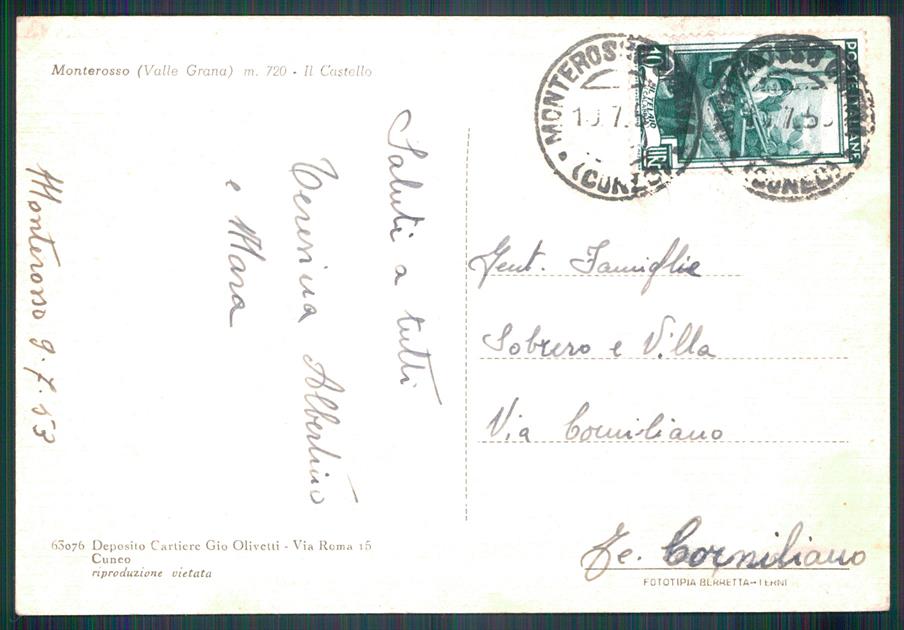 Monterosso (Valle Grana) m. 720 - Il Castello
Saluti a tutti
Teresina Albertino
e Mara
Monterosso 9.7.53
63076 Deposito Cartiere Gio Olivetti - Via Roma 15
Cuneo
riproduzione vietata
MONTEROSSO
(CUNEO)
POSTE ITALIANE
LIRE
10
(CUNEO)
Gent. Famiglie
Sobrero e Villa
Via Corniliano
Ge. Corniliano
FOTOTIPIA BERRETTA - TERNI